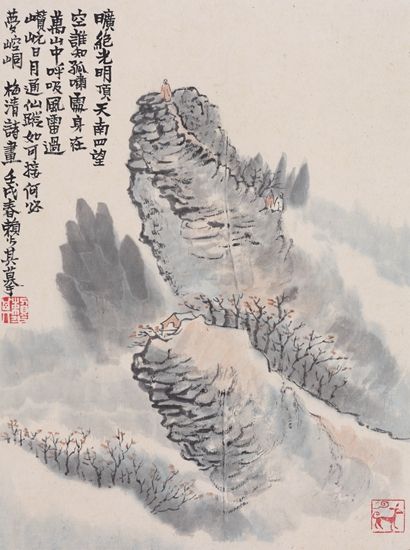 曠絕光明頂天南四望
空誰知孤嘯處身在
萬山中呼吸風雷過
巑岏日月通仙蹤如可接何必
夢崆峒 梅清詩畫 壬戌春賴少其摹